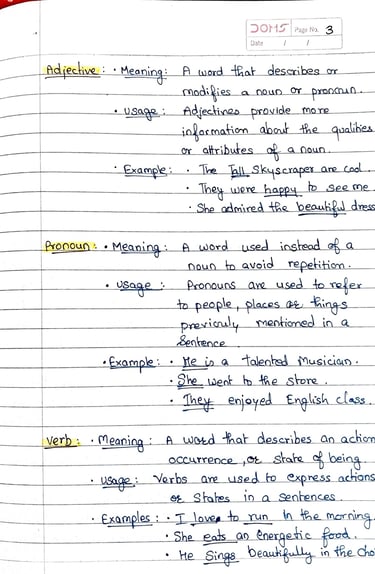 DOMS Page No. 3
Date / /
Adjective : • Meaning : A word that describes or
modifies a noun or pronoun.
• Usage : Adjectives provide more
information about the qualities
or attributes of a noun.
• Example : • The Tall Skyscraper are cool.
• They were happy to see me.
• She admired the beautiful dress
Pronoun : • Meaning : A word used instead of a
noun to avoid repetition.
• usage : Pronouns are used to refer
to people, places or things
previously mentioned in a
Sentence.
• Example : • He is a talented Musician.
• She went to the store.
• They enjoyed English class.
Verb : • Meaning : A word that describes an action
occurrence, or state of being.
• usage : Verbs are used to express actions
or States in a sentences.
• Examples : • I love to run in the morning.
• She eats an energetic food.
• He Sings beautifully in the cho